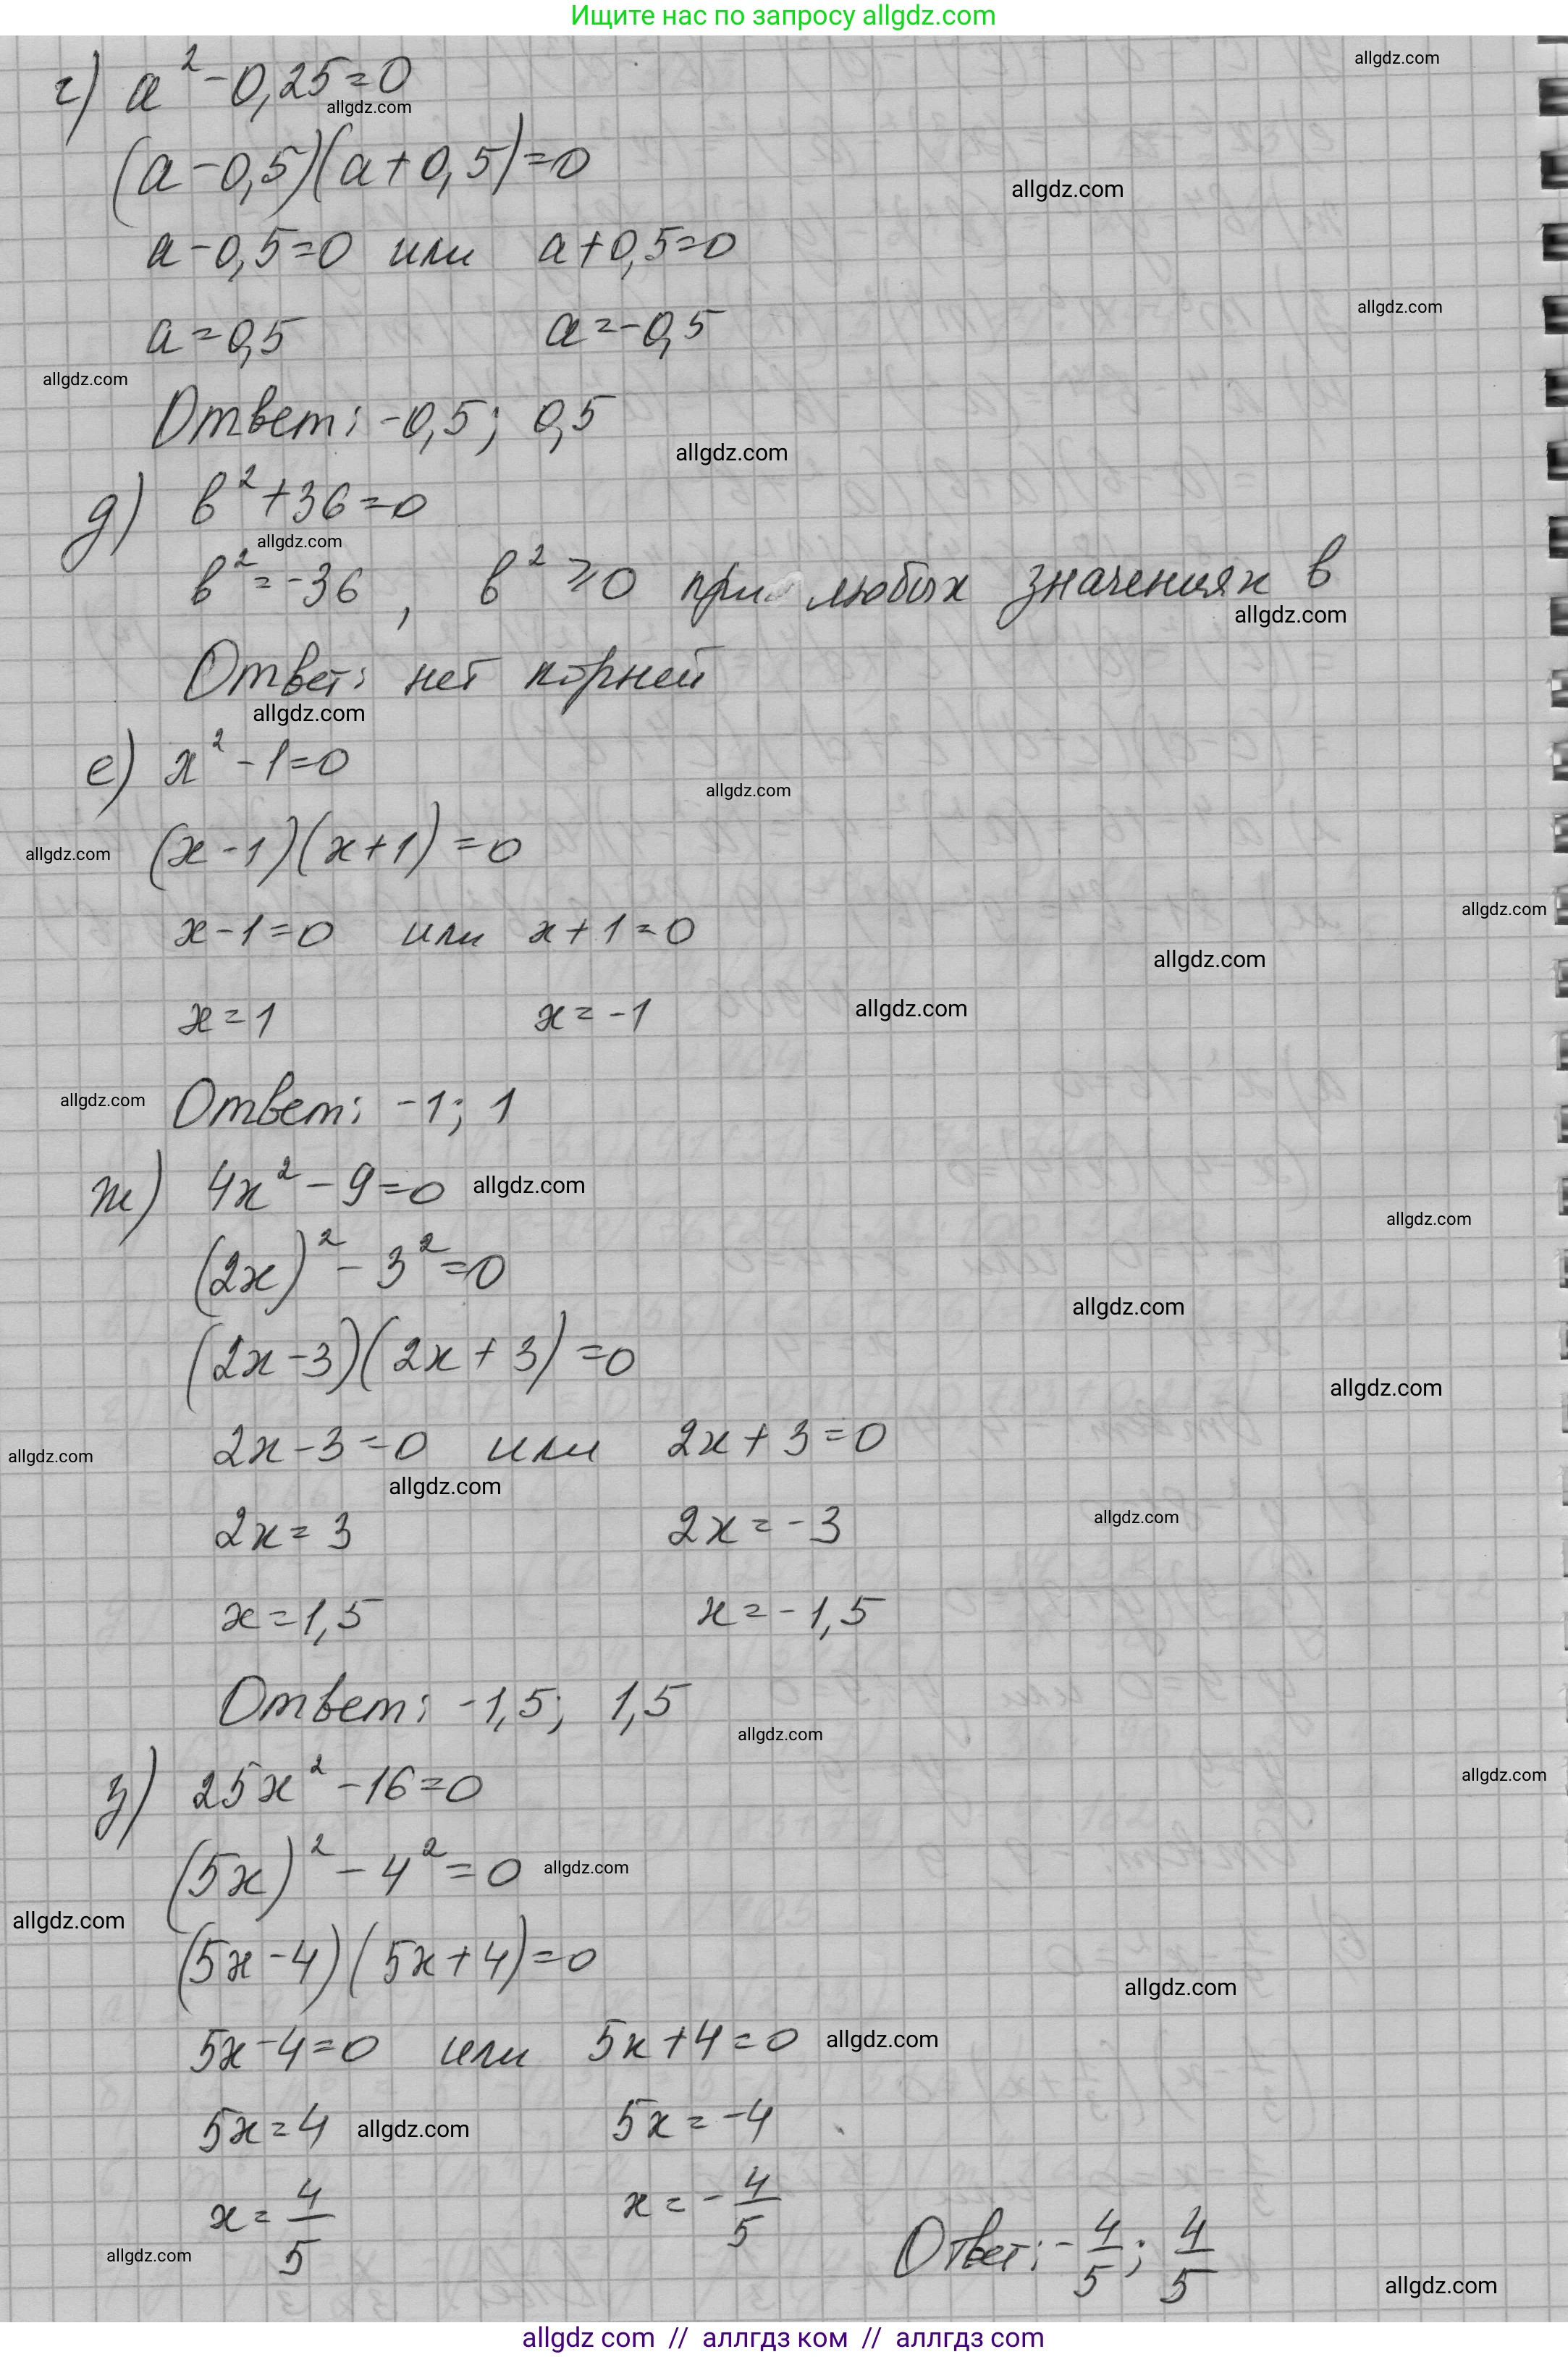 Ищите нас по запросу allgdz.com
allgdz.com
г) a² - 0,25 = 0
allgdz.com
(a - 0,5)(a + 0,5) = 0
allgdz.com
a - 0,5 = 0 или a + 0,5 = 0
allgdz.com
a = 0,5 a = -0,5
allgdz.com
Ответ: -0,5; 0,5
allgdz.com
д) b² + 36 = 0
allgdz.com
b² = -36 , b² ≥ 0 при любых значениях b
allgdz.com
Ответ: нет корней
allgdz.com
е) x² - 1 = 0
allgdz.com
(x - 1)(x + 1) = 0
allgdz.com
allgdz.com
x - 1 = 0 или x + 1 = 0
allgdz.com
x = 1 x = -1
allgdz.com
allgdz.com
Ответ: -1; 1
ж) 4x² - 9 = 0
allgdz.com
allgdz.com
(2x)² - 3² = 0
allgdz.com
(2x - 3)(2x + 3) = 0
allgdz.com
2x - 3 = 0 или 2x + 3 = 0
allgdz.com
allgdz.com
2x = 3 2x = -3
allgdz.com
x = 1,5 x = -1,5
Ответ: -1,5; 1,5
allgdz.com
allgdz.com
з) 25x² - 16 = 0
(5x)² - 4² = 0
allgdz.com
allgdz.com
(5x - 4)(5x + 4) = 0
allgdz.com
5x - 4 = 0 или 5x + 4 = 0
allgdz.com
5x = 4 5x = -4
allgdz.com
x = 4/5 x = -4/5
Ответ: -4/5; 4/5
allgdz.com
allgdz.com
allgdz com // аллгдз ком // аллгдз com